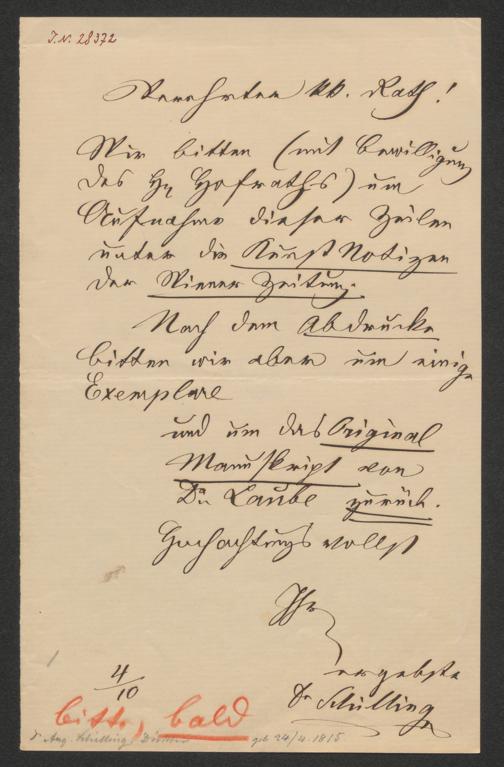 I.N. 28372
Verehrter kk. Rath!
Wir bitten (mit Bewilligung
des H. Hofraths) um
Aufnahme dieser Zeilen
unter die Kunst Notizen
der Wiener Zeitung.
Nach dem Abdrucke
bitten wir aber um einige
Exemplare
und um das Original
Manuskript von
Dr. Laube zurück.
Hochachtungsvollst
Ihr
ergebste
Dr Schilling
4/10
bitte, bald
Dr. Aug. Schilling, Dichter geb 24/4. 1815